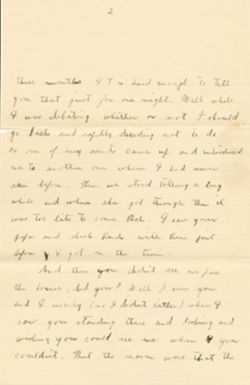 2
three months. It is hard enough to tell
you that just for one night. Well while
I was debating whether or not I should
go back and rapidly deciding not to do
so one of my aunts came up and introduced
me to another one whom I had never
seen before. Then we stood talking a long
while and when she got through then it
was too late to come back. I saw your
papa and shook hands with him just
before I got on the train.
And then you didn't see us pass
the house, did you? Well I saw you
and I nearly I didn't either when I
saw you standing there and looking and
wishing you could see me when you
couldn't. But the reason was that the